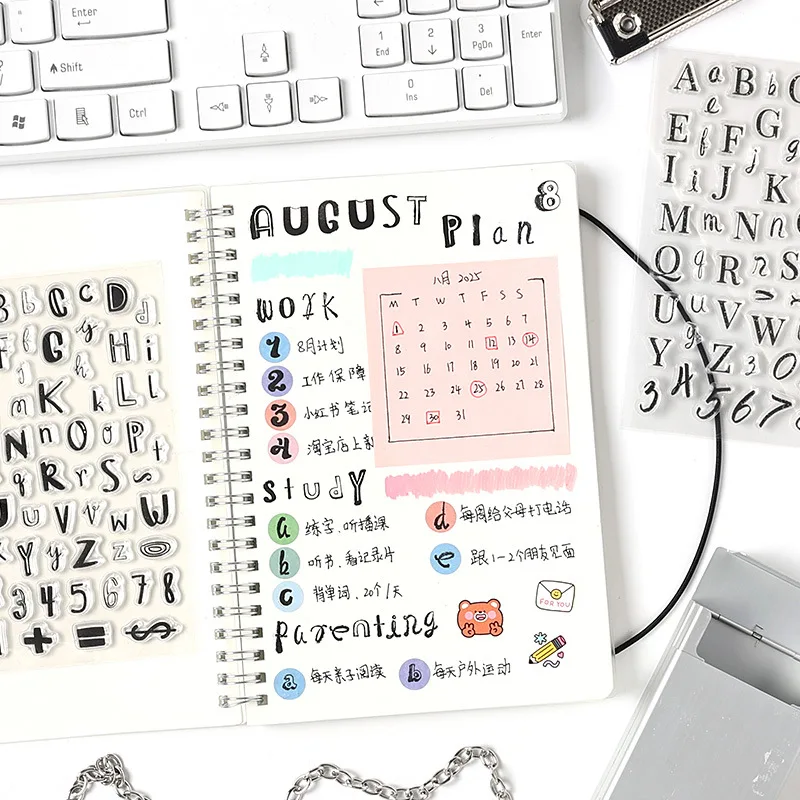 Enter
Shift
Ctrl
1 2 3
End ↓ PgDn
Enter
0 .
Ins Del
A a B b C
e
E f F G g
j
I i J K
M m N n
Q q R r S
U u V W
Y Z 3 0
3 4 5 6 7 8
B b C c D d
f G g H i
m K k L l
N n O o P
q R r S
U U V v w W
X Y y Z z
3 4 5 6 7 8
+ = $
AUGUST Plan 8
work
1 8月计划
2 工作保障
3 小红书笔记
4 淘宝店上新
八月 2025
M T W T F S S
1 2 3 4 5 6 7
8 9 10 11 12 13 14
15 16 17 18 19 20 21
22 23 24 25 26 27 28
29 30 31
study
a 练字、听播课
b 听书、看记录片
c 背单词、20个/天
d 每周给父母打电话
e 跟1-2个朋友见面
FOR YOU
parenting
a 每天亲子阅读
b 每天户外运动